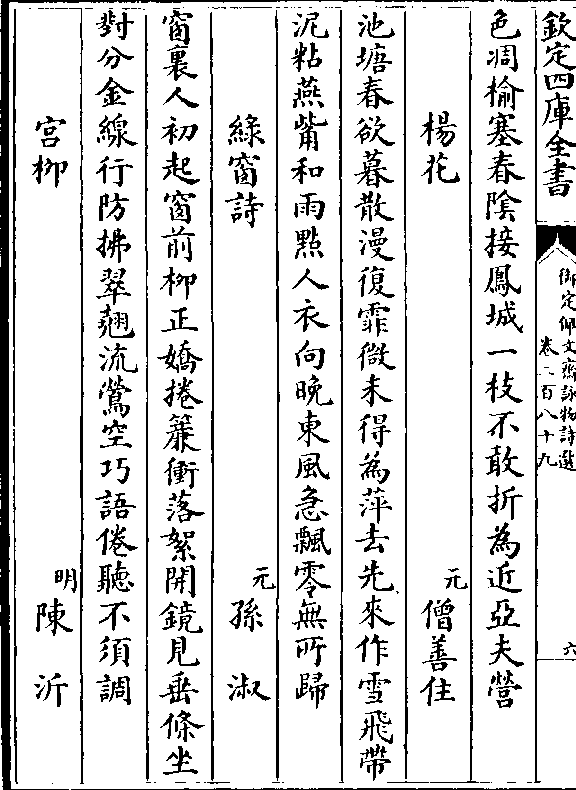 欽定四庫全書
御定佩文齋詠物詩選
卷二百八十九
六
色凋榆塞春陰接鳳城一枝不敢折為近亞夫營
楊花
元
僧善住
池塘春欲暮散漫復霏微未得為萍去先來作雪飛帶
泥粘燕觜和雨點人衣向晚東風急飄零無所歸
綠窗詩
元
孫淑
窗裏人初起窗前柳正嬌捲簾衝落絮開鏡見垂條坐
對分金線行防拂翠翹流鶯空巧語倦聽不須調
宮柳
明
陳沂